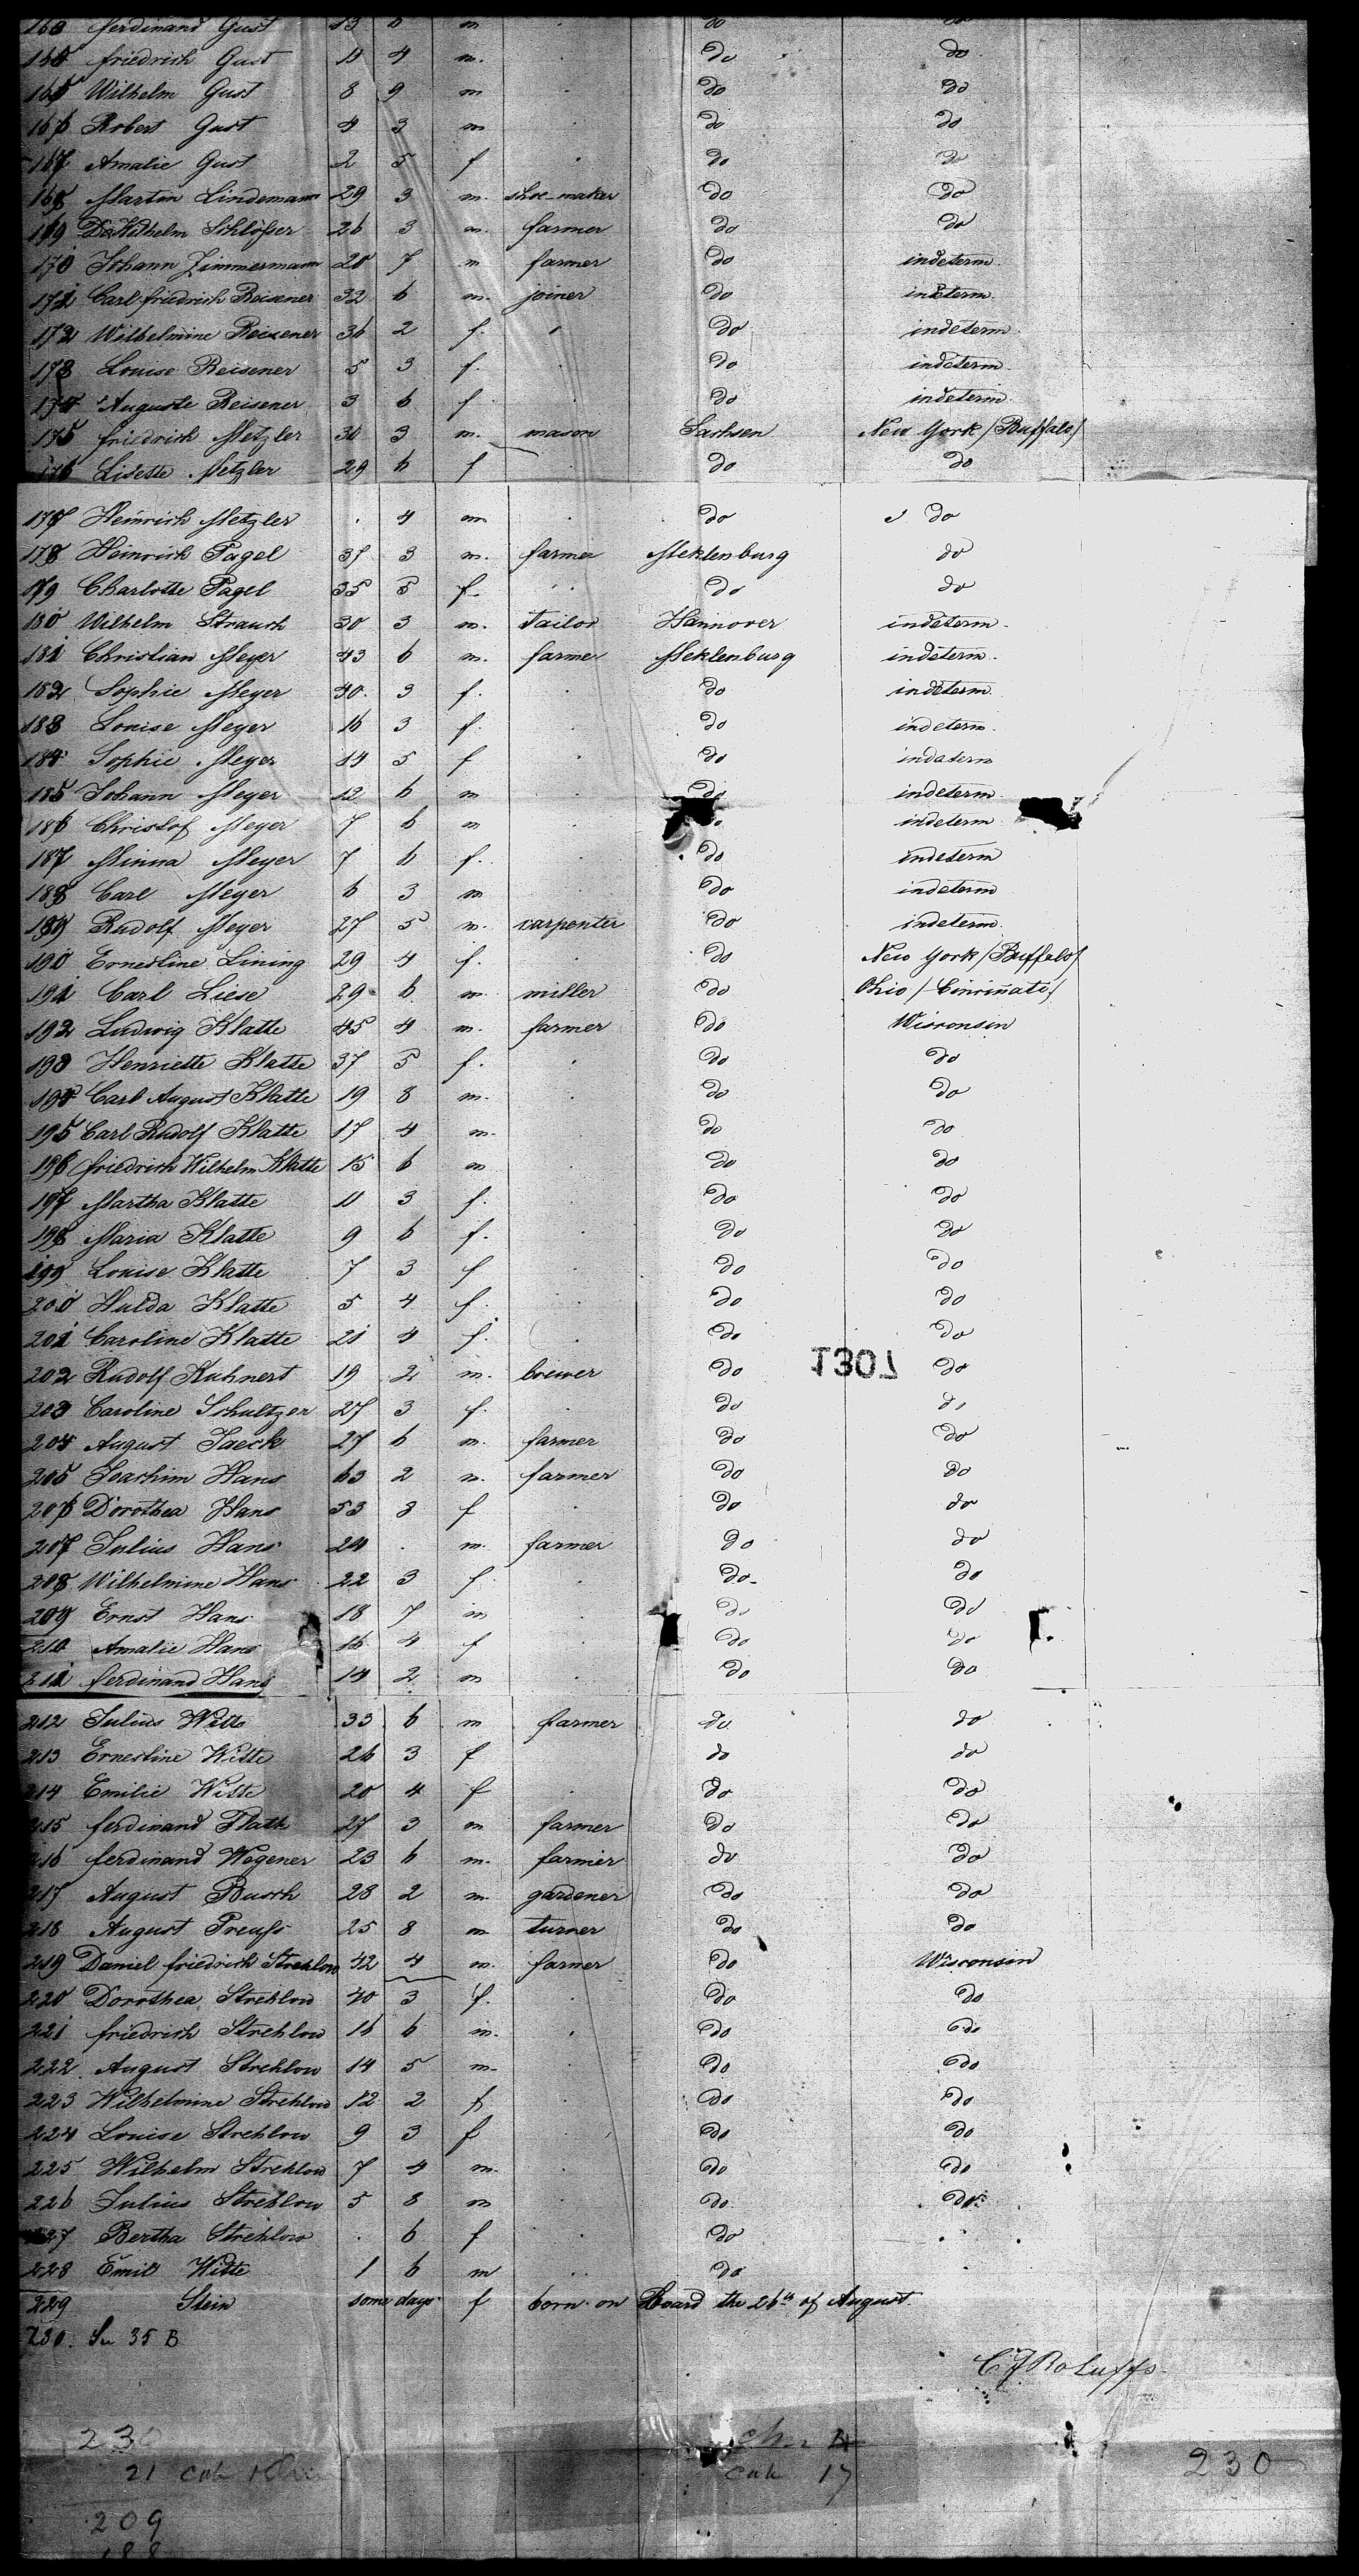 163 Ferdinand Gust 13 6 m . do do
164 Friedrich Gust 11 4 m. . do do
165 Wilhelm Gust 8 9 m . do do
166 Robert Gust 4 3 m . do do
167 Amalie Gust 2 5 f . do do
168 Martin Lindemann 29 3 m. shoe-maker do do
169 Wilhelm Schlößer 26 3 m. farmer do do
170 Johann Zimmermann 20 7 m farmer do indeterm.
171 Carl Friedrich Reisener 32 6 m. joiner do indeterm.
172 Wilhelmine Reisener 36 2 f. . do indeterm.
173 Louise Reisener 5 3 f. . do indeterm.
174 Auguste Reisener 3 6 f . do indeterm.
175 Friedrich Metzler 30 3 m. mason Sachsen New York /Buffalo/
176 Lisette Metzler 29 6 f . do do
177 Heinrich Metzler . 4 m . do do
178 Heinrich Pagel 37 3 m. farmer Meklenburg do
179 Charlotte Pagel 35 5 f. . do do
180 Wilhelm Strauch 30 3 m. tailor Hannover indeterm.
181 Christian Meyer 43 6 m. farmer Meklenburg indeterm.
182 Sophie Meyer 40. 3 f. . do indeterm.
183 Louise Meyer 16 3 f. . do indeterm.
184 Sophie Meyer 14 5 f . do indeterm
185 Johann Meyer 12 6 m . do indeterm
186 Christof Meyer 7 6 m . do indeterm
187 Minna Meyer 7 6 f. . do indeterm
188 Carl Meyer 6 3 m . do indeterm
189 Rudolf Meyer 27 5 m. carpenter do indeterm.
190 Ernestine Lining 29 4 f. . do New York /Buffalo/
191 Carl Liese 29 6 m miller do Ohio /Cincinnati/
192 Ludwig Klatte 45 4 m. farmer do Wisconsin
193 Henriette Klatte 37 5 f. . do do
194 Carl August Klatte 19 8 m. . do do
195 Carl Rudolf Klatte 17 4 m. . do do
196 Friedrich Wilhelm Klatte 15 6 m . do do
197 Martha Klatte 11 3 f. . do do
198 Maria Klatte 9 6 f. . do do
199 Louise Klatte 7 3 f . do do
200 Hulda Klatte 5 4 f. . do do
201 Caroline Klatte 21 4 f. . do do
1307
202 Rudolf Kuhnert 19 2 m. brewer do do
203 Caroline Schultzen 27 3 f. . do do
204 August Jaeck 27 6 m. farmer do do
205 Joachim Hans 63 2 m. farmer do do
206 Dorothea Hans 53 3 f . do do
207 Julius Hans 24 . m. farmer do do
208 Wilhelmine Hans 22 3 f . do do
209 Ernst Hans 18 7 m . do do
210 Amalie Hans 16 4 f . do do
211 Ferdinand Hans 14 2 m . do do
212 Julius Witte 33 6 m farmer do do
213 Ernestine Witte 26 3 f . do do
214 Emilie Witte 20 4 f . do do
215 Ferdinand Plath 27 3 m farmer do do
216 Ferdinand Wegener 23 6 m. farmer do do
217 August Busch 28 2 m. gardener do do
218 August Preuß 25 8 m turner do do
219 Daniel Friedrich Strehlow 42 4 m. farmer do Wisconsin
220 Dorothea Strehlow 40 3 f. . do do
221 Friedrich Strehlow 16 6 m. . do do
222 August Strehlow 14 5 m. . do do
223 Wilhelmine Strehlow 12 2 f. . do do
224 Louise Strehlow 9 3 f . do do
225 Wilhelm Strehlow 7 4 m. . do do
226 Julius Strehlow 5 8 m . do do
227 Bertha Strehlow . 6 f . do .
228 Emil Witte 1 6 m . do .
229 Stein some days f born on Board the 26th of August.
230. 35 B
C J Roluffs
230 230
21 17
209
188